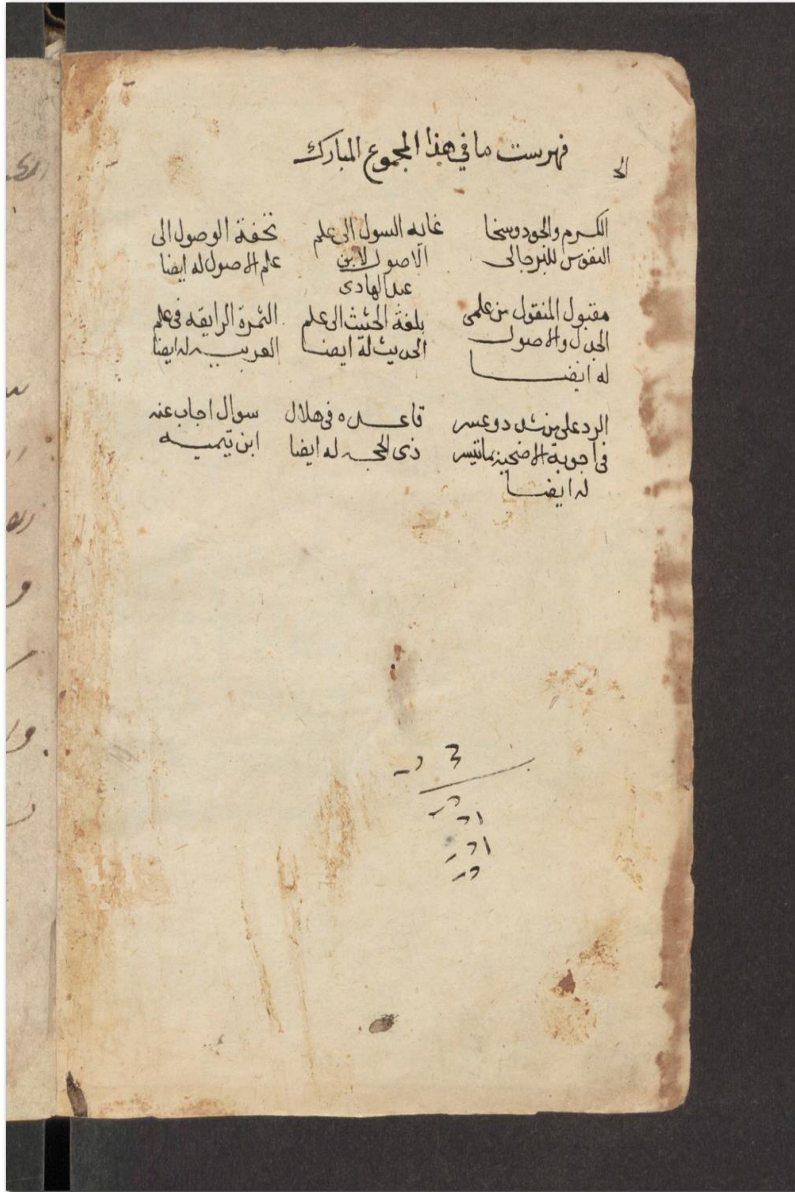 فهرست ما في هذا المجموع المبارك
الكرم والجود وسخا
النفوس للبرجلاني
غايه السول الى علم
الاصول لابن
عبد الهادى
تحفة الوصول الى
علم الاصول له ايضا
مقبول المنقول من علمي
الجدل والاصول
له ايضا
بلغة الحثيث الى علم
الحديث له ايضا
الثمرة الرايقه في علم
العربيه له ايضا
الرد على من شدد وعسر
في اجوبة الاضحية بما تيسر
له ايضا
قاعده في هلال
ذى الحجه له ايضا
سوال اجاب عنه
ابن تيميه